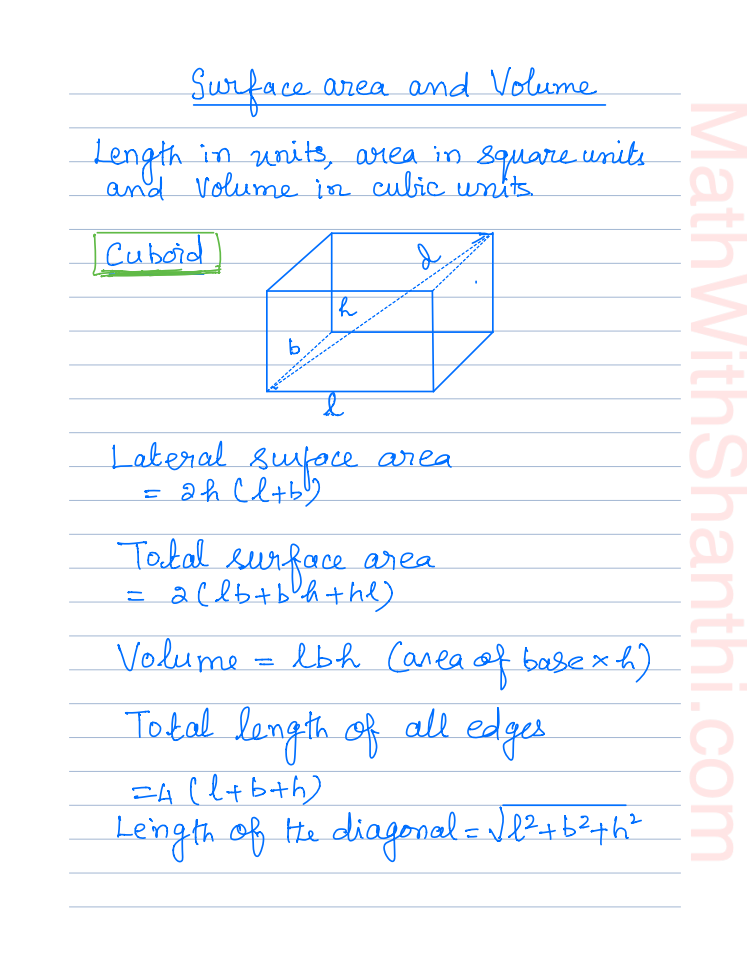 Surface area and Volume
Length in units, area in square units
and Volume in cubic units.
Cuboid
d
h
b
l
Lateral surface area
= 2h (l+b)
Total surface area
= 2(lb+bh+hl)
Volume = lbh (area of base × h)
Total length of all edges
=4 (l+b+h)
Length of the diagonal = √l²+b²+h²
MathWithShanthi.com